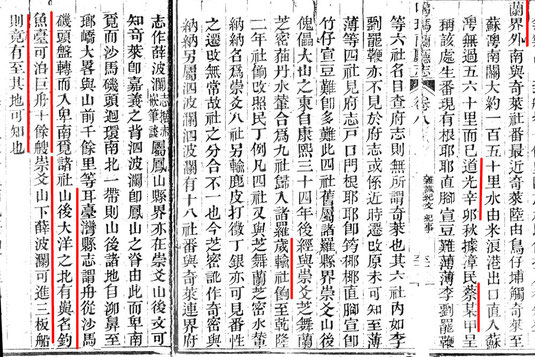 蘭界外南與奇萊社最近奇萊陸由鳥仔埔觸奇萊至
蘇澳南關大約一百五十里水由米浪港出口直入蘇
澳無過五六十里而已道光辛卯秋據漳民蔡某甲呈
稱該處生番現有根耶耶直腳宣豆難薄薄李劉罷鞭
噶瑪蘭廳志 卷八 紀事
等六社名目查府志則無所謂奇萊也其六社內如李
劉罷鞭亦不見於府志或係近時遷改原未可知至薄
薄等四社見府志戶口門根耶耶即筠椰椰直腳宣即
竹仔宣豆難即多難此四社舊屬諸羅縣界崇爻山後
傀儡大山之東自康熙三十四年後經與崇爻芝舞蘭
芝密猫丹水輦合為九社歸入諸羅歲輸社餉至乾隆
二年社餉改照民丁例凡四社又與芝舞蘭芝密水輦
納納名為崇爻八社另輸鹿皮打徵丁銀亦可見番性
之遷改無常故社之分合不一也又芝密訛作奇密與
納納另屬泗波瀾泗波瀾有十八社番與奇萊連界府
志作薛波瀾赤嵌筆談屬鳳山縣界亦在崇爻山後文可
知奇萊即嘉義之背泗波瀾即鳳山之脊由此而卑南
覓而沙馬磯頭迴環南北一帶則山後諸地自泖鼻至
瑯嶠大畧與山前千餘里等耳臺灣縣志謂舟從沙馬
磯頭盤轉而入卑南覓諸社山後大洋之北有嶼名釣
魚臺可泊巨舟十餘艘崇爻山下薛波瀾可進三板船
則竟有至其地可知也